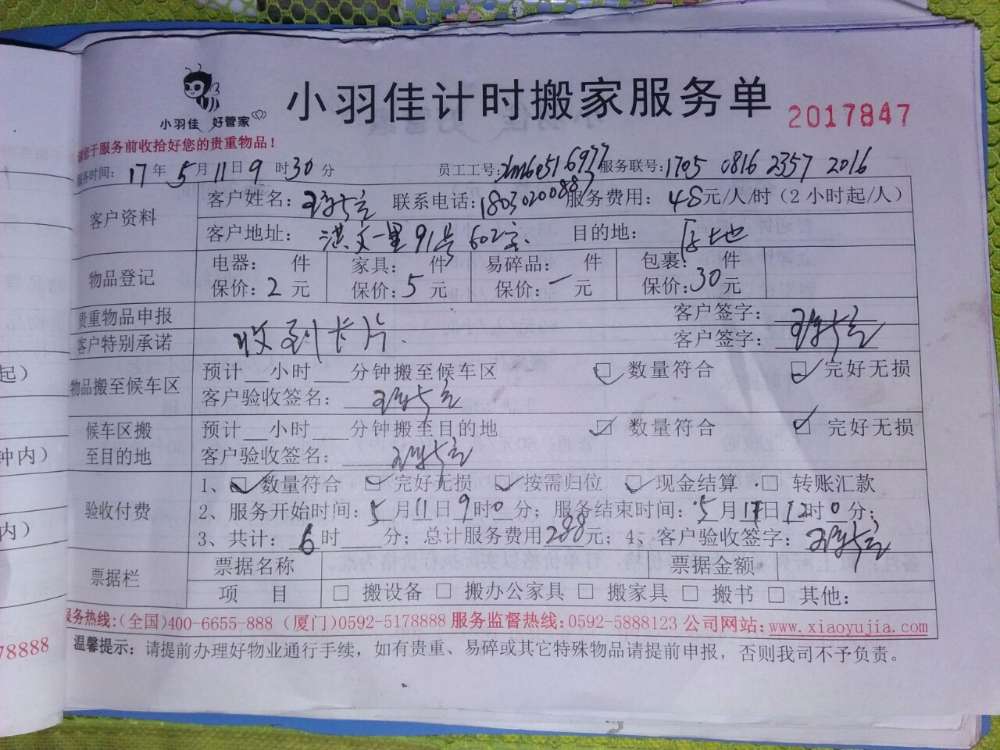 小羽佳计时搬家服务单
小羽佳 好管家
2017847
于服务前收拾好您的贵重物品!
服务时间: 17年5月11日9时30分 员工工号: 服务联号:1705 0816 2357 2016
客户资料
客户姓名: 联系电话: 服务费用: 48元/人/时(2小时起/人)
客户地址: 洪文一里91号602室. 目的地: 原地
物品登记
电器: 件 家具: 件 易碎品: 件 包裹: 件
保价:2元 保价:5元 保价:一元 保价:30元
贵重物品申报 客户签字:
客户特别承诺 收到卡片. 客户签字:
物品搬至候车区
预计__小时___分钟搬至候车区 数量符合 完好无损
客户验收签名:
候车区搬至目的地
预计__小时___分钟搬至目的地 数量符合 完好无损
客户验收签名:
验收付费
1、数量符合 完好无损 按需归位 现金结算 转账汇款
2、服务开始时间:5月11日9时0分;服务结束时间:5月17日12时0分;
3、共计:6时___分;总计服务费用288元;4、客户验收签字:
票据栏
票据名称 票据金额
项 目 □ 搬设备 □ 搬办公家具 □ 搬家具 □ 搬书 □ 其他:
服务热线:(全国)400-6655-888 (厦门)0592-5178888 服务监督热线:0592-5888123 公司网站:www.xiaoyujia.com
温馨提示:请提前办理好物业通行手续,如有贵重、易碎或其它特殊物品请提前申报,否则我司不予负责。
起)
钟内)
内)
78888